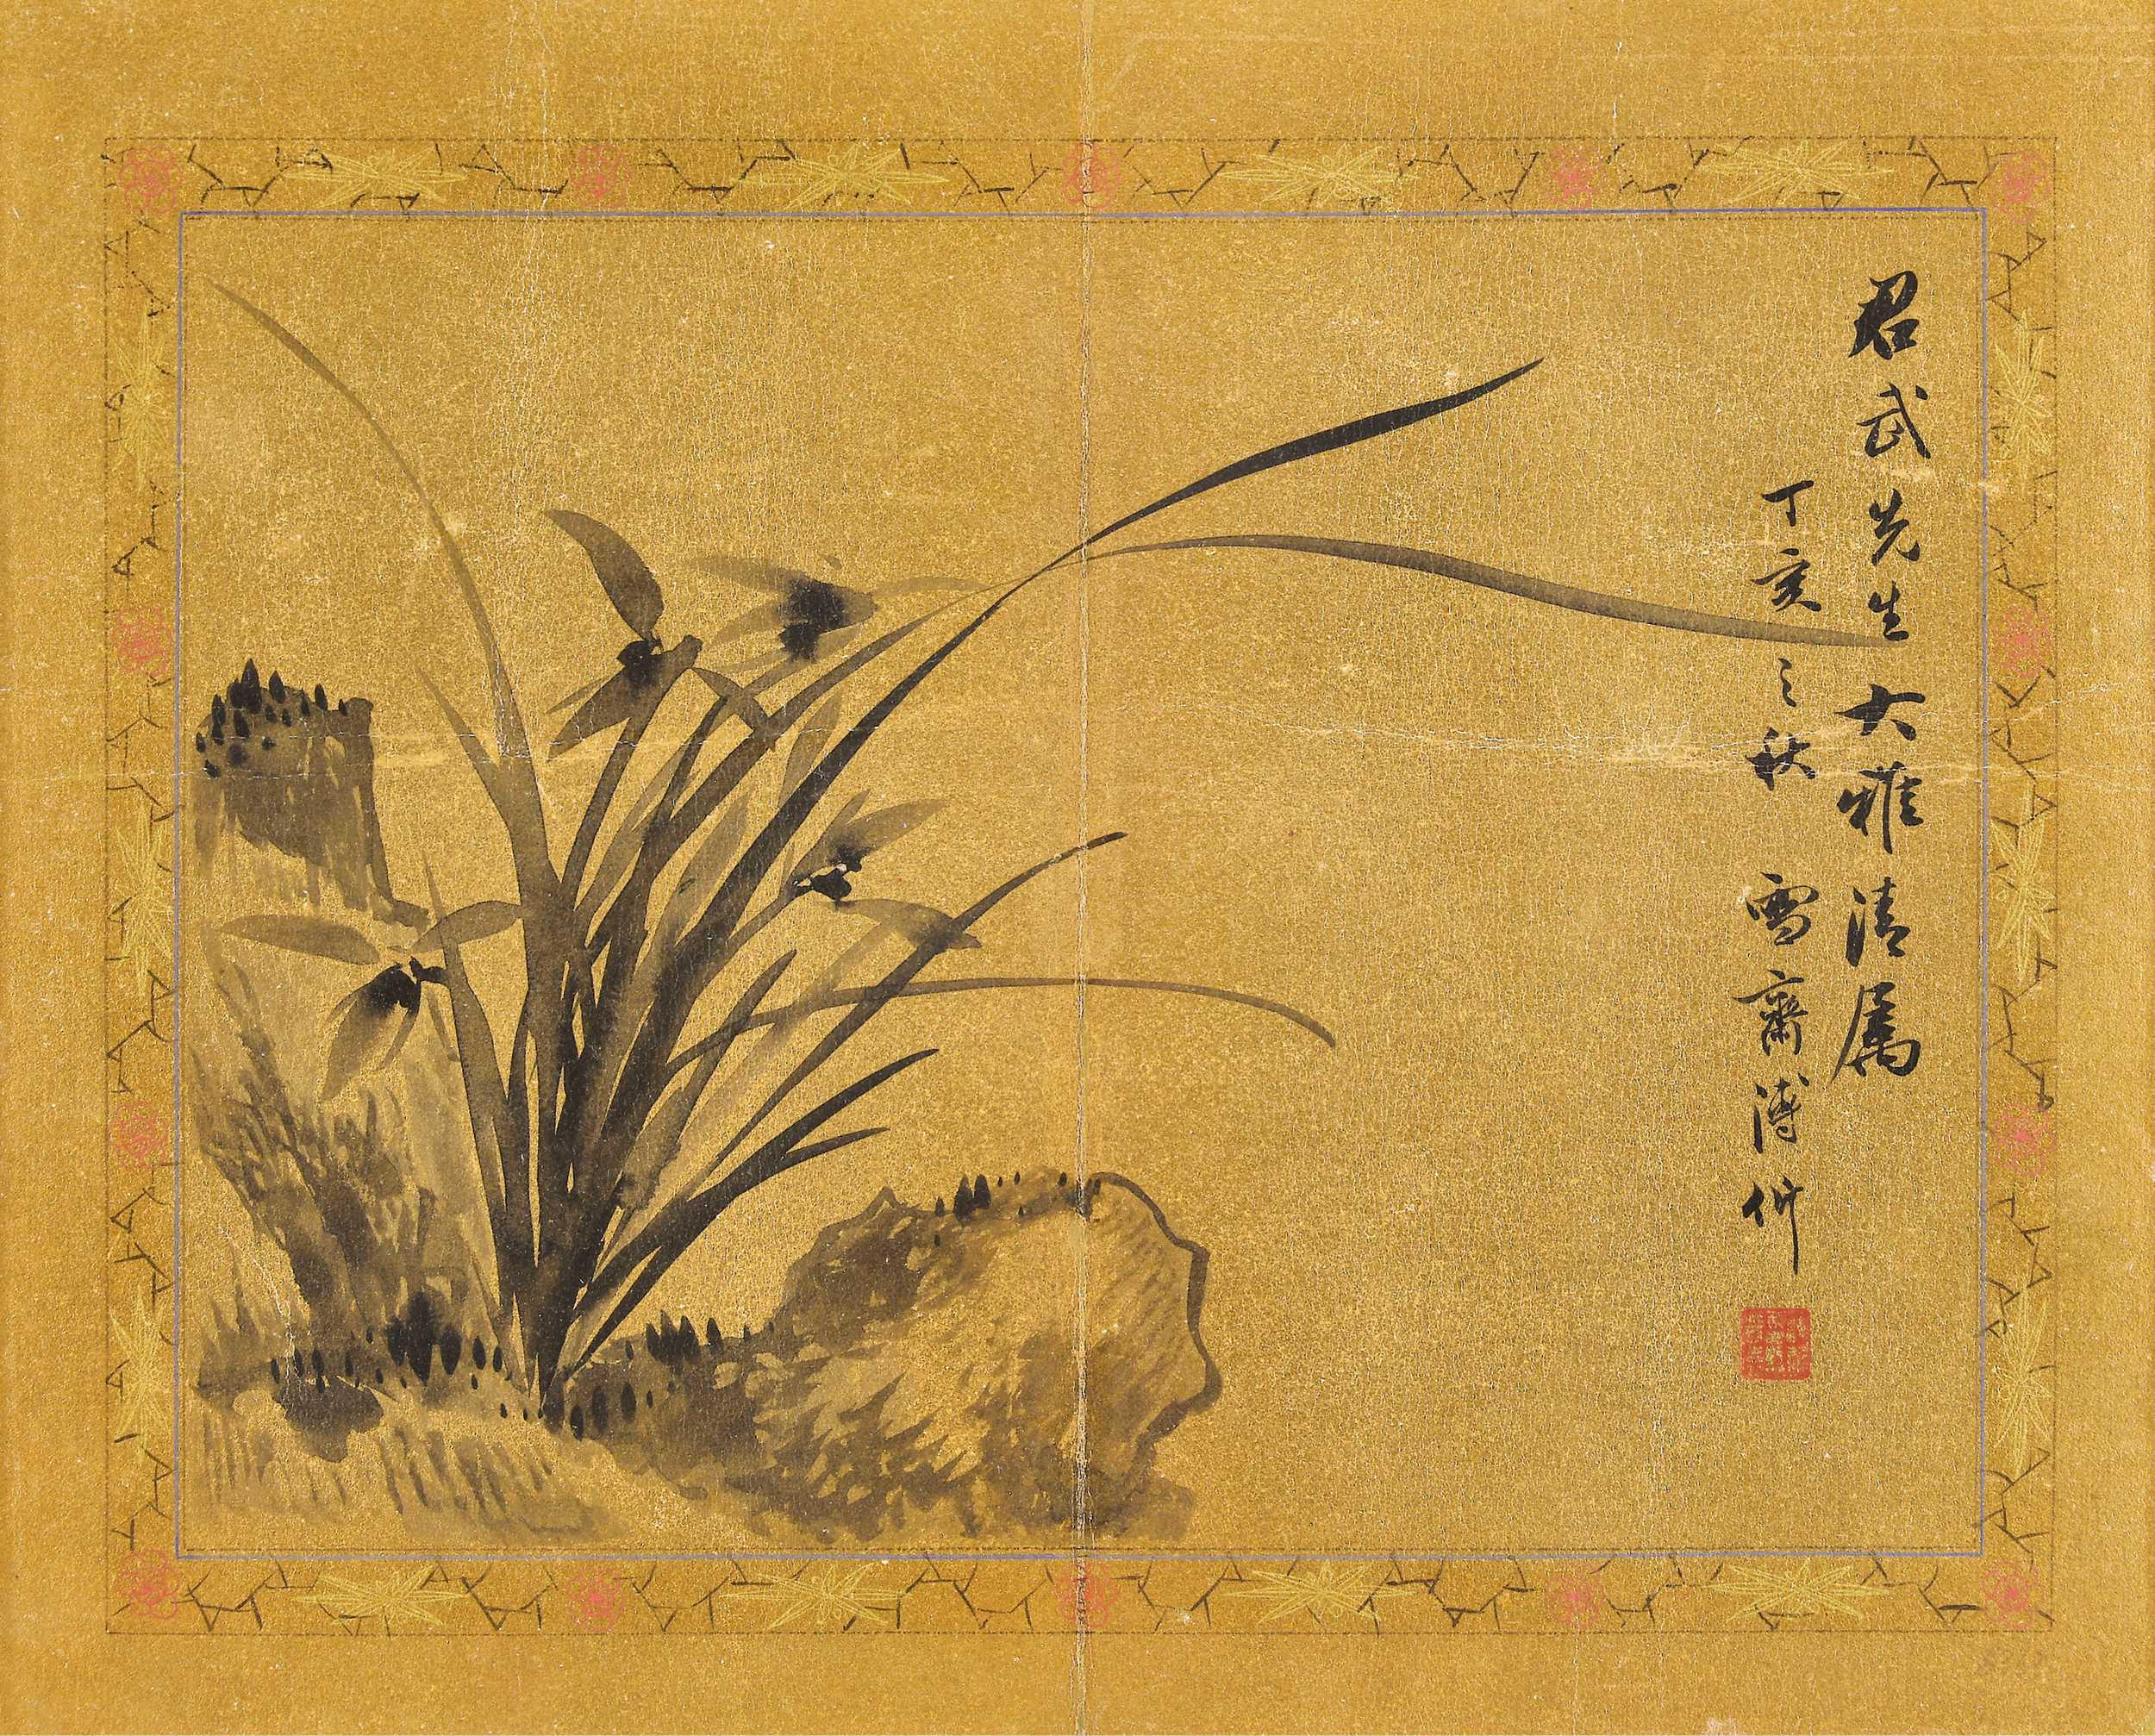 君武先生大雅清属
丁亥之秋 雪齋溥伒